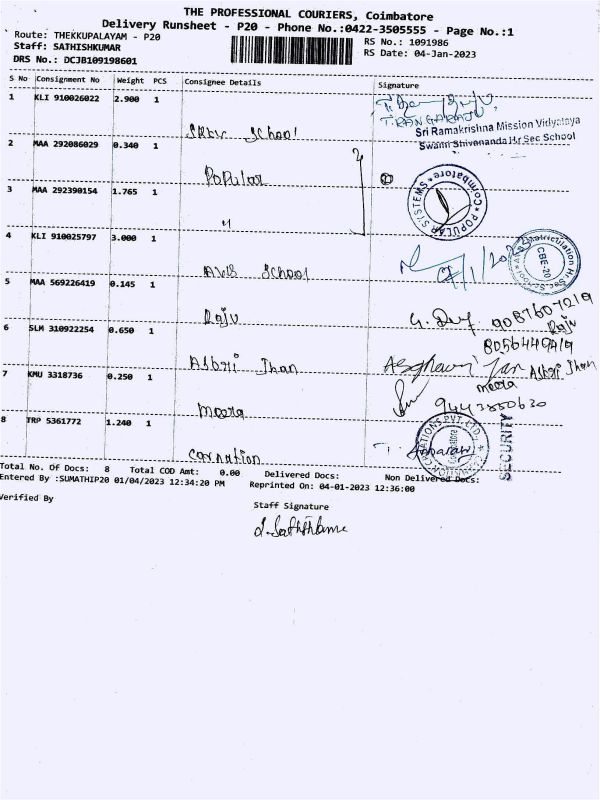 THE PROFESSIONAL COURIERS, Coimbatore
Delivery Runsheet - P20 - Phone No.:0422-3505555 - Page No.:1
Route: THEKKUPALAYAM - P20
RS No.: 1091986
Staff: SATHISHKUMAR
RS Date: 04-Jan-2023
DRS No.: DCJB109198601
S No Consignment No Weight PCS Consignee Details Signature
1 KLI 910026022 2.900 1
T.RANGARAJU
Sri Ramakrishna Mission Vidyalaya
Swami Shivananda Hr Sec School
School
2 MAA 292086029 0.340 1
Popular
POPULAR SYSTEMS * Coimbatore *
3 MAA 292390154 1.765 1
"
4 KLI 910025797 3.000 1
AVB School
Matriculation Hr. Sec. School
CBE-20
5 MAA 569226419 0.145 1
Raju
9087607219
Raju
8056449419
6 SLM 310922254 0.650 1
Asbri Jhan
Asbri Jhan
7 KMU 3318736 0.250 1
Meera
meera
9443850630
8 TRP 5361772 1.240 1
Carnation
SECURITY
Total No. Of Docs: 8 Total COD Amt: 0.00 Delivered Docs: Non Delivered Docs:
Entered By :SUMATHIP20 01/04/2023 12:34:20 PM Reprinted On: 04-01-2023 12:36:00
Verified By
Staff Signature